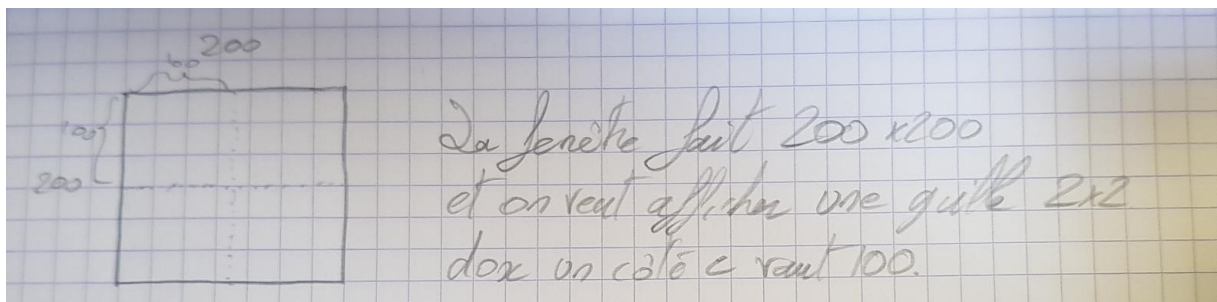 200
100
100
200
La fenêtre fait 200x200
et on veut afficher une grille 2x2
donc un côté c vaut 100.